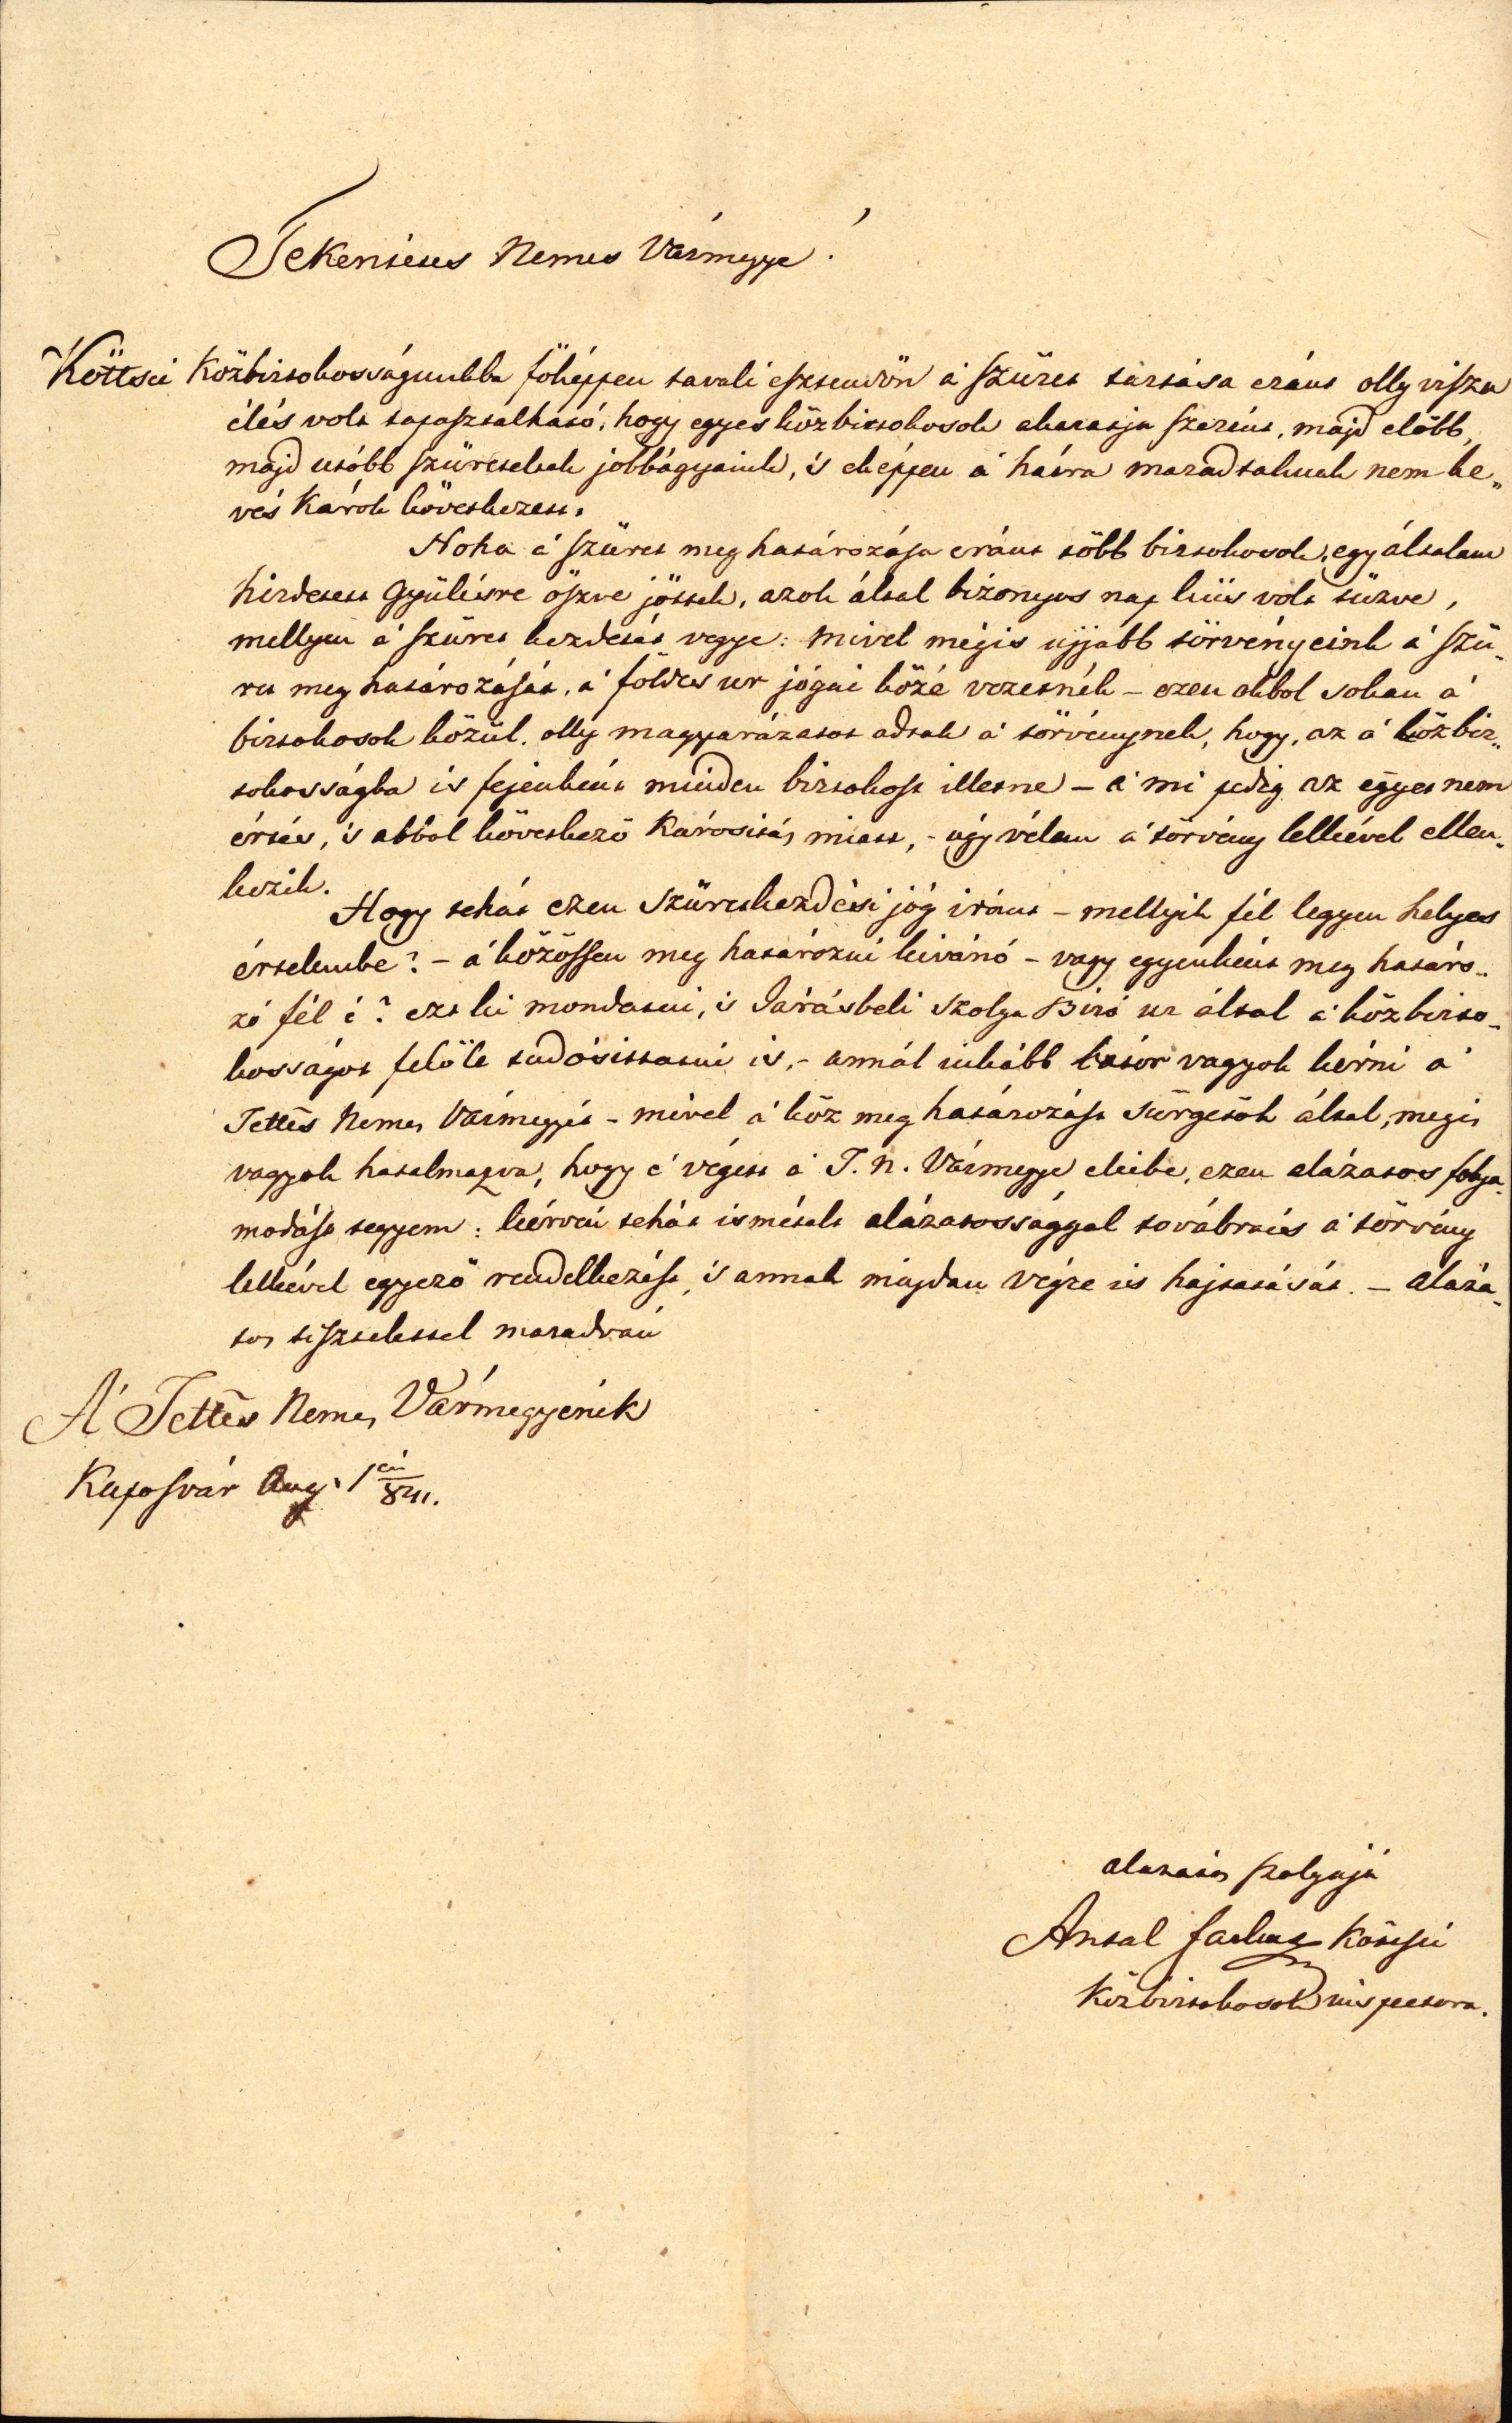 Tekentetes Nemes Vármegye!
Köttsei Közbirtokosságunkba főképpen tavali esztendőn a' szüret tartása eránt olly vissza
élés volt tapasztalható, hogy egyes közbirtokosok akaratja szerént, majd előbb,
majd utóbb szüreteltek jobbágyaink, 's eképpen a' hátra maradtaknak nem ke„
vés károk következett.
Noha a' szüret meg határozása eránt több birtokosok, egy általam
hirdetett gyülésre öszve jöttek, azok által bizonyos nap kiis volt tüzve,
mellyen a' szüret kezdetét vegye: mivel mégis ujjabb törvényeink a' szü„
ret meg határozását, a' földes ur jógai közé vezetnék – ezen okbol sokan a'
birtokosok közül, olly magyarázatot adtak a' törvénynek, hogy, az a' közbir„
tokosságba is fejenként minden birtokost illetne – a' mi pedig az egyet nem
értés, 's abból következő kárositás miatt, – úgy vélem a' törvény lelkével ellen„
kezik.
Hogy tehát ezen szüretkezdési jóg iránt – mellyik fél legyen helyes
értelembe? – a' közössen meg határozni kivánó – vagy egyenként meg határo„
zó fél é? ezt ki mondatni, 's Járásbeli Szolga Biró ur által a' közbirto„
kosságot felőle tudósittatni is, – annál inkább bátor vagyok kérni a'
Tettes Nemes Vármegyét – mivel a' köz meg határozást sürgetők által, megis
vagyok hatalmazva, hogy e' végett a' T. N. Vármegye eleibe, ezen alázatos folya„
modást tegyem: kérvén tehát ismételt alázatossággal továbraés a' törvény
lelkével egyező rendelkezést, 's annak miújdan végre is hajtatását. – aláza„
tos tisztelettel maradván
A' Tettes Nemes Vármegyének
Kaposvár Aug. 1 én 841.
alázatos szolgája
Antal Köttsei
Közbirtokosok inspectora.